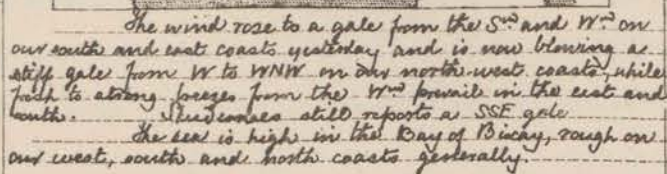 The wind rose to a gale from the Swd and Wd on
our south and east coasts yesterday and is now blowing a
stiff gale from W to WNW on our north-west coasts, while
fresh to strong breezes from the Wd prevail in the east and
south. Skudesnaes still reports a SSE gale
The sea is high in the Bay of Biscay, rough on
our west, south and north coasts generally.